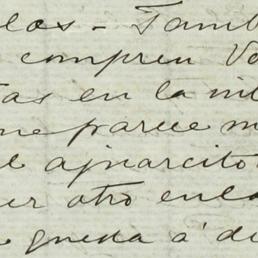 los - Tamb
compren Va
tas en la mi
me parece m
el apuarcito
er otro enla
queda a' di